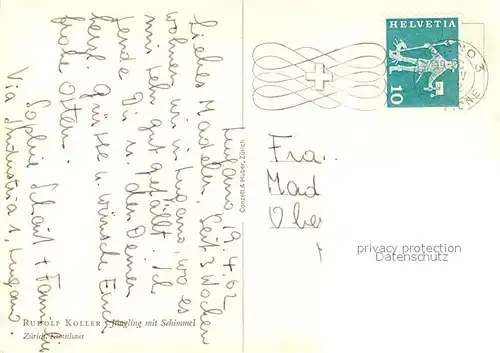 Lugano 19.4.62
Liebes Madelen, Seit 3 Wochen
wohnen wir in Lugano, wo es
mir sehr gut gefällt. Ich
sende Dir u. den Deinen
herzl. Grüsse u. wünsche Euch
frohe Ostern.
Sophie + Familie
Via Industria 1, Lugano.
RUDOLF KOLLER Jüngling mit Schimmel
Zürich, Kunsthaus
Conzett & Huber, Zürich
HELVETIA
10
Frau
Mad
Ober
privacy protection
Datenschutz